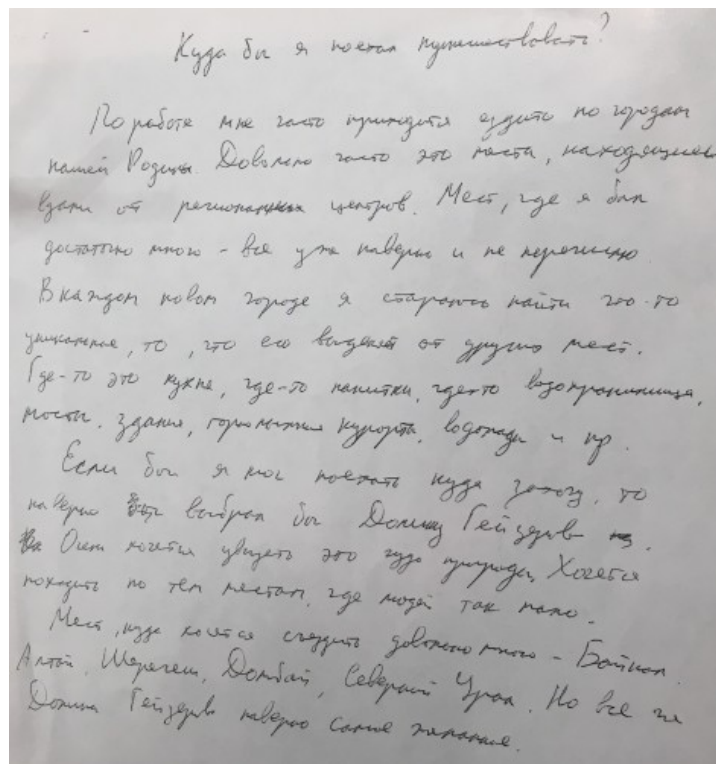 Куда бы я поехал путешествовать?
По работе мне часто приходится ездить по городам
нашей Родины. Довольно часто это места, находящиеся
вдали от региональных центров. Мест, где я был
достаточно много - все уже наверно и не перечислю.
В каждом новом городе я стараюсь найти что-то
уникальное, то, что его выделяет от других мест.
Где-то это кухня, где-то напитки, где-то водохранилища,
мосты, здания, горнолыжные курорты, водопады и пр.
Если бы я мог поехать куда захочу, то
наверно выбрал бы Долину Гейзеров.
Очень хочется увидеть это чудо природы. Хочется
походить по тем местам, где людей так мало.
Мест, куда хочется съездить довольно много - Байкал,
Алтай, Шерегеш, Домбай, Северный Урал. Но все же
Долина Гейзеров наверно самое желанное.